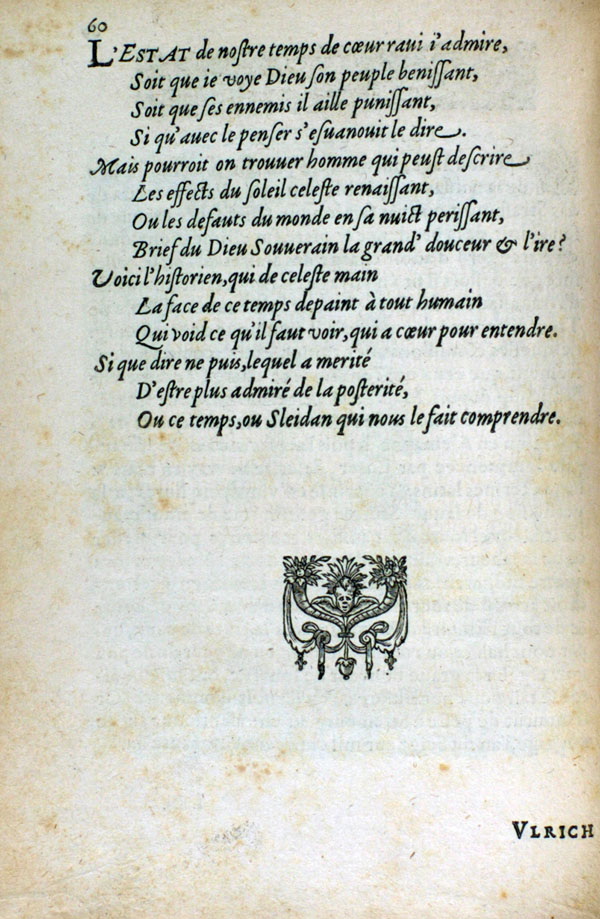 60
L'ESTAT de nostre temps de cœur raui i'admire,
Soit que ie voye Dieu son peuple benissant,
Soit que ses ennemis il aille punissant,
Si qu'auec le penser s'esuanouit le dire.
Mais pourroit on trouuer homme qui peust descrire
Les effects du soleil celeste renaissant,
Ou les defauts du monde en sa nuict perissant,
Brief du Dieu Souuerain la grand' douceur & l'ire?
Voici l'historien, qui de celeste main
La face de ce temps depaint à tout humain
Qui void ce qu'il faut voir, qui a cœur pour entendre.
Si que dire ne puis, lequel a merité
D'estre plus admiré de la posterité,
Ou ce temps, ou Sleidan qui nous le fait comprendre.
VLRICH